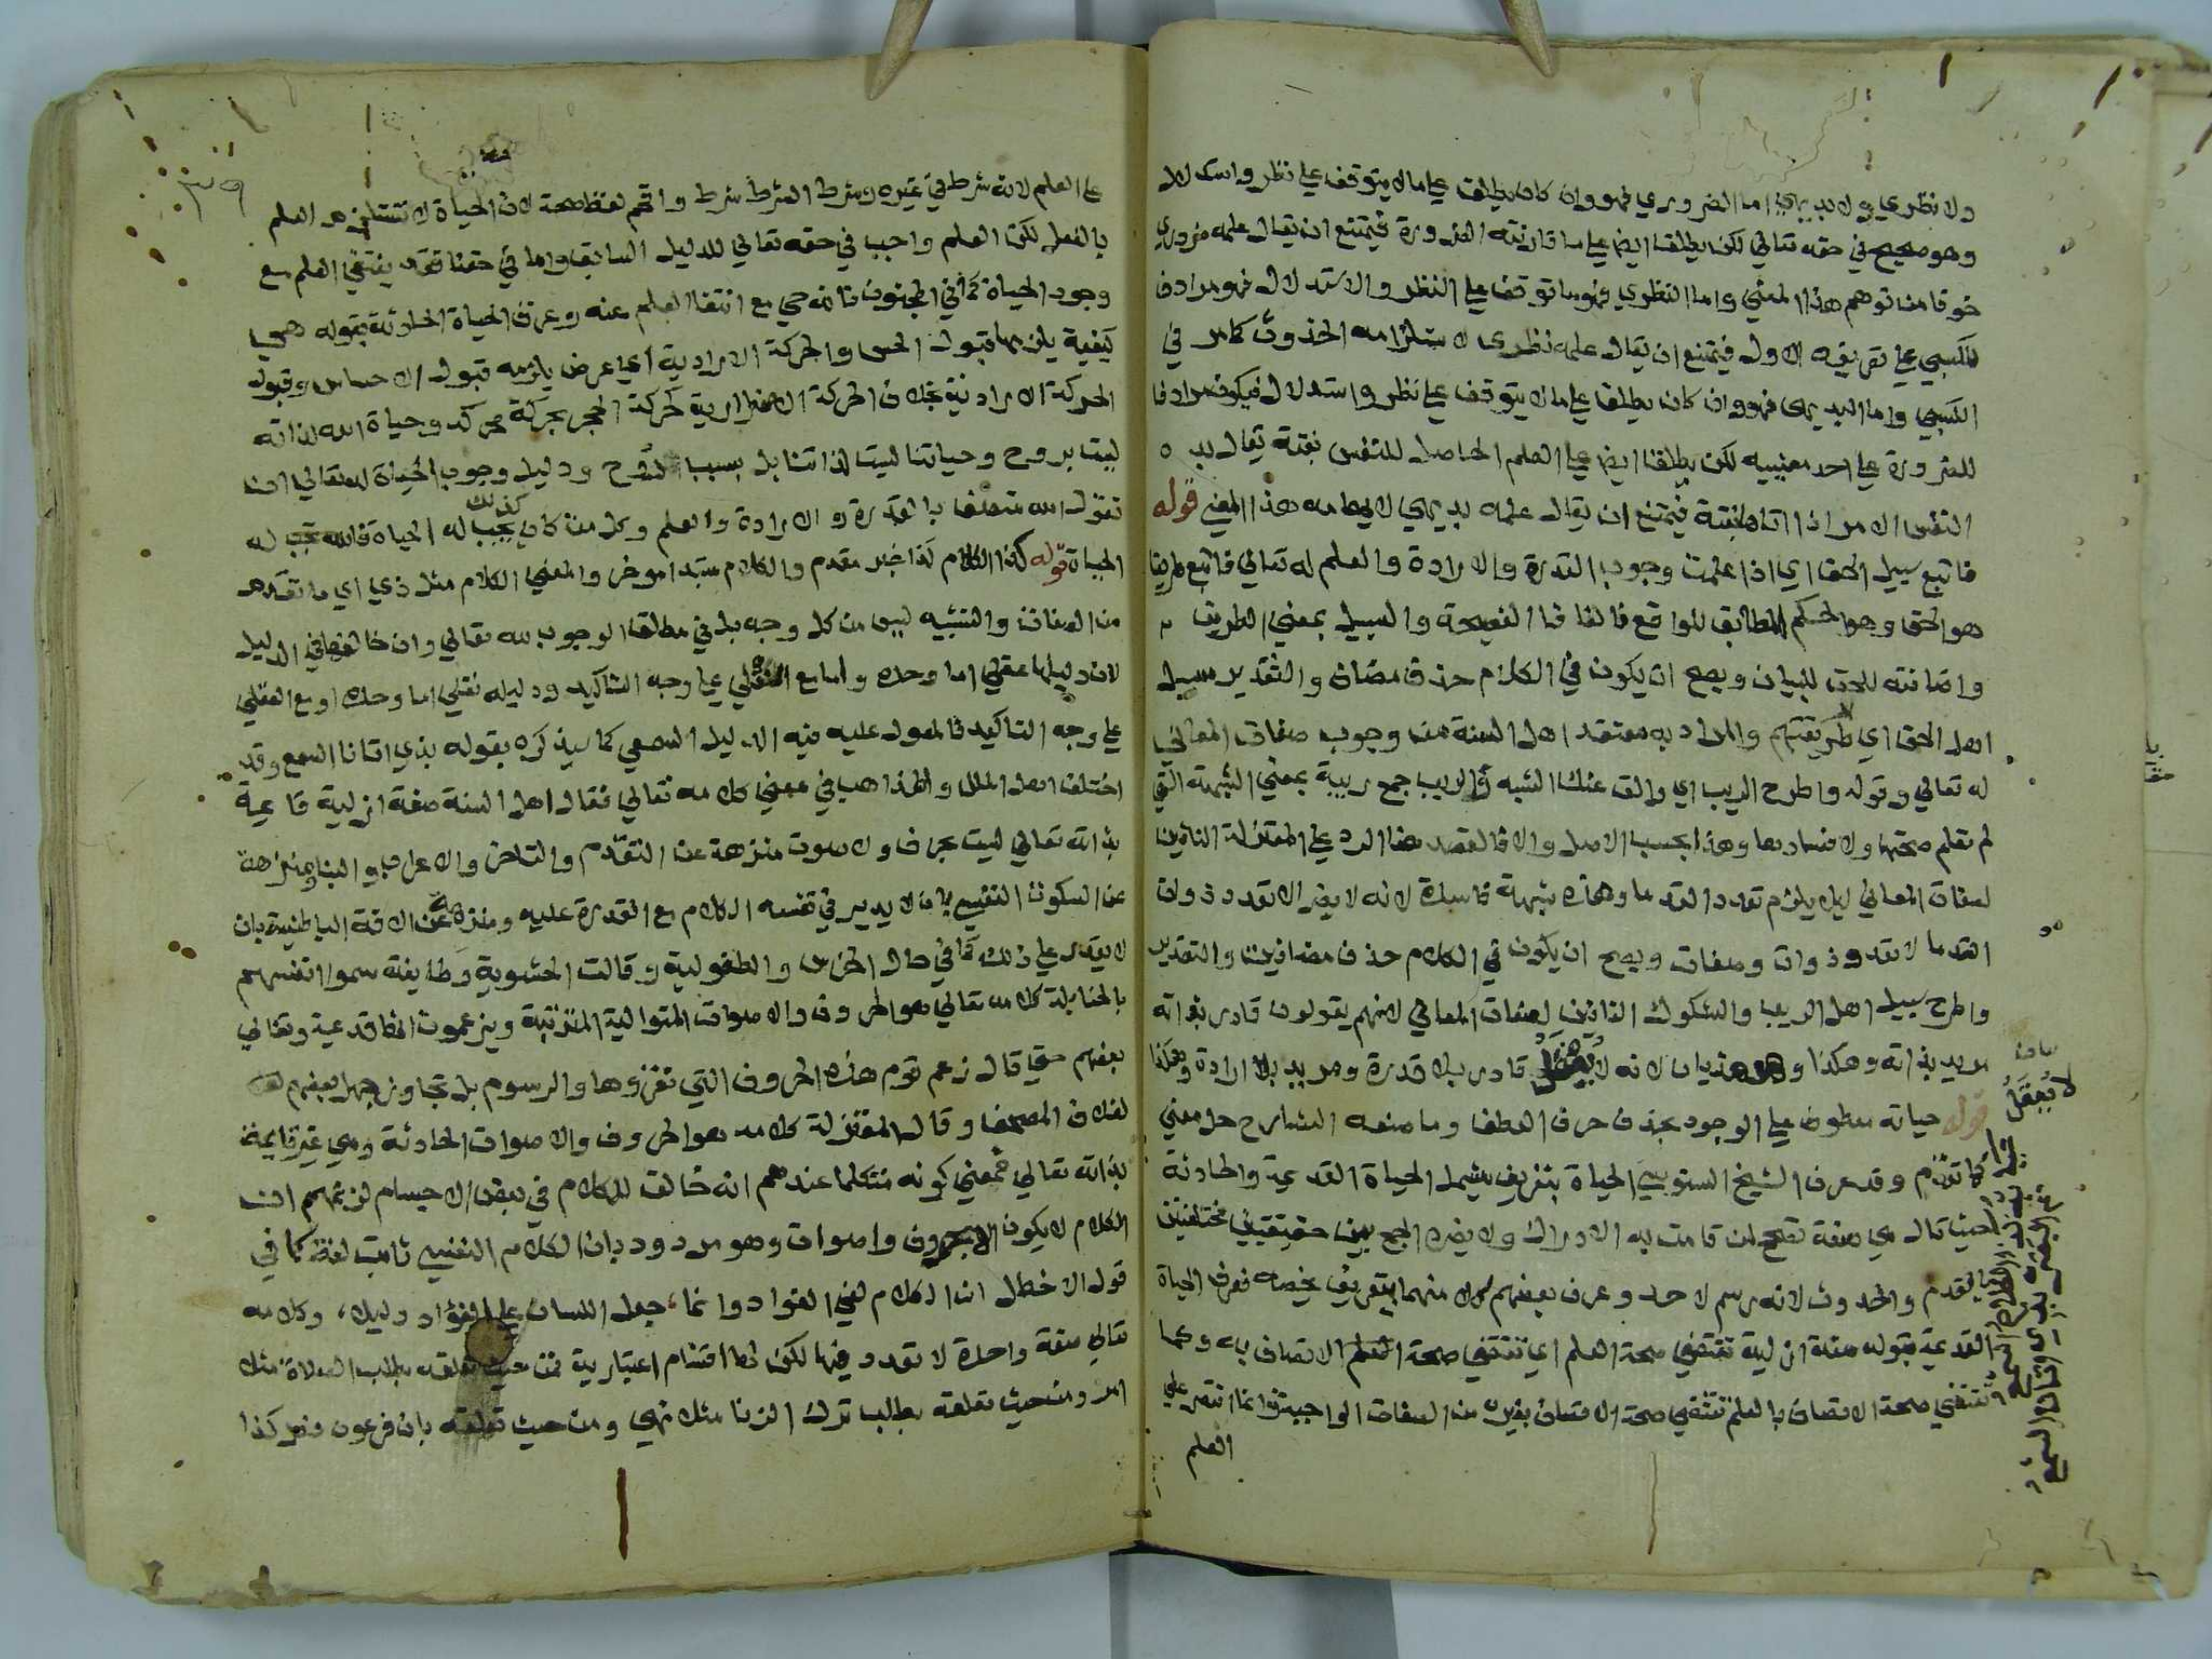 ولا نظري ولا بديهي اما الضروري فهو وان كان يطلق على ما لا يتوقف على نظر واستدلال
وهو صحيح في حقه تعالى لكن يطلق ايضا على ما قارنته الضرورة فيمتنع ان يقال علمه ضروري
خوفا من توهم هذا المعني واما النظري فهو ما توقف على النظر والاستدلال فهو مرادف
للكسبي على تعريفه الاول فيمتنع ان يقال علمه نظري لاستلزامه الحدوث كما مر في
الكسبي واما البديهي فهو وان كان يطلق على ما لا يتوقف على نظر واستدلال فيكون مرادفا
للضرورة على احد معنييه لكن يطلق ايضا على العلم الحاصل للنفس بغتة يقال بده
النفس الامر اذا اتاها بغتة فيمتنع ان يقال علمه بديهي لايهامه هذا المعني قوله
فاتبع سبيل الحق اي اذا علمت وجوب القدرة والارادة والعلم له تعالي فاتبع طريقا
هو الحق وهو الحكم المطابق للواقع فالفا فا الفصيحة والسبيل بمعني الطريق
واضافته للحق للبيان ويصح ان يكون في الكلام حذف مضاف والتقدير سبيل
اهل الحق اي طريقتهم والمراد به معتقد اهل السنة من وجوب صفات المعاني
له تعالي وقوله واطرح الريب اي والق عنك الشبه فالريب جمع ريبة بمعني الشبهة التي
لم تعلم صحتها ولا فسادها وهذا بحسب الاصل والا فالقصد هنا الرد على المعتزلة النافين
لصفات المعاني ليلا يلزم تعدد القدما وهذه شبهة فاسدة لانه لا يضر الا تعدد ذوات
القدما لا تعدد ذوات وصفات ويصح ان يكون في الكلام حذف مضافين والتقدير
واطرح سبيل اهل الريب والشكوك النافين لصفات المعاني لانهم يقولون قادر بذاته
مريد بذاته وهكذا وهو هذيان لانه لا يعقل قادر بلا قدرة ومريد بلا ارادة وهكذا
بيان
لا يعقل
قوله حياته معطوف على الوجود بحذف حرف العطف وما صنعه الشارح حل معني
كما تقدم وقد عرف الشيخ السنوسي الحياة بتعريف يشمل الحياة القديمة والحادثة
حيث قال هي صفة تصحح لمن قامت به الادراك ولا يضره الجمع بين حقيقتين مختلفتين
بالقدم والحدوث لانه رسم لا حد وعرف بعضهم كلا منهما بتعريف يخصه فعرف الحياة
القديمة بقوله صفة ازلية تقتضي صحة العلم اي تقتضي صحة العلم الاتصاف به وكما
تقتضي صحة الاتصاف بالعلم تقتضي صحة الاتصاف بغيره من الصفات الواجبة وانما اقتصر على
العلم
٣٩
على العلم لانه شرط في غيره وشرط الشرط شرط واقحم لفظ صحة لان الحياة لا تستلزم العلم
بالفعل لكن العلم واجب في حقه تعالي للدليل السابق واما في حقنا فقد ينتفي العلم مع
وجود الحياة كما في المجنون فانه حي مع انتفا العلم عنه وعرف الحياة الحادثة بقوله هي
كيفية يلزمها قبول الحس والحركة الارادية اي عرض يلزمه قبول الاحساس وقبول
الحركة الارادية بخلاف الحركة الاضطرارية كحركة الحجر بحركة محركه وحياة الله لذاته
ليست بروح وحياتنا ليست لذاتنا بل بسبب الروح ودليل وجوب الحياة له تعالي ان
تقول الله متصف بالقدرة والارادة والعلم وكل من كان كذلك يجب له الحياة فالله تجب له
الحياة قوله كذا الكلام كذا خبر مقدم والكلام مبتدا موخر والمعني الكلام مثل ذي اي ما تقدم
من الصفات والتشبيه ليس من كل وجه بل في مطلق الوجوب لله تعالي وان خالفها في الدليل
لان دليلها عقلي اما وحده واما مع النقلي على وجه التاكيد ودليله نقلي اما وحده او مع العقلي
على وجه التاكيد فالمعول عليه فيه الدليل السمعي كما سيذكره بقوله بذي اتانا السمع وقد
اختلف اهل الملل والمذاهب في معني كلامه تعالي فقال اهل السنة صفة ازلية قايمة
بذاته تعالي ليست بحرف ولا صوت منزهة عن التقدم والتاخر والاعراب والبنا ومنزهة
عن السكوت النفسي بان لا يدير في نفسه الكلام مع القدرة عليه ومنزهة عن الافة الباطنية بان
لا يقدر على ذلك كما في حال الخرس والطفولية وقالت الحشوية وطايفة سموا انفسهم
بالحنابلة كلامه تعالي هو الحروف والاصوات المتوالية المترتبة ويزعمون انها قديمة وتغالي
بعضهم حتي قال زعم قوم هذه الحروف التي نقروها والرسوم بل تجاوز جهل بعضهم
لغلاف المصحف وقال المعتزلة كلامه هو الحروف والاصوات الحادثة وهي غير قايمة
بذاته تعالي فمعني كونه متكلما عندهم انه خالق للكلام في بعض الاجسام لزعمهم ان
الكلام لا يكون الا بحروف واصوات وهو مردود بان الكلام النفسي ثابت لغة كما في
قول الاخطل ان الكلام لفي الفواد وانما، جعل اللسان على الفؤاد دليلا، وكلامه
تعالي صفة واحدة لا تعدد فيها لكن لها اقسام اعتبارية فمن حيث تعلقه بطلب الصلاة مثلا
امر ومن حيث تعلقه بطلب ترك الزنا مثلا نهي ومن حيث تعلقه بان فرعون فعل كذا